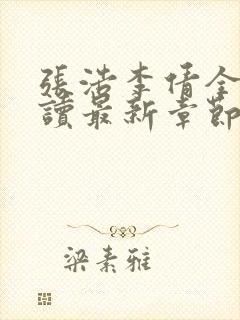 張浩李倩全
讀最新章節
梁素雅